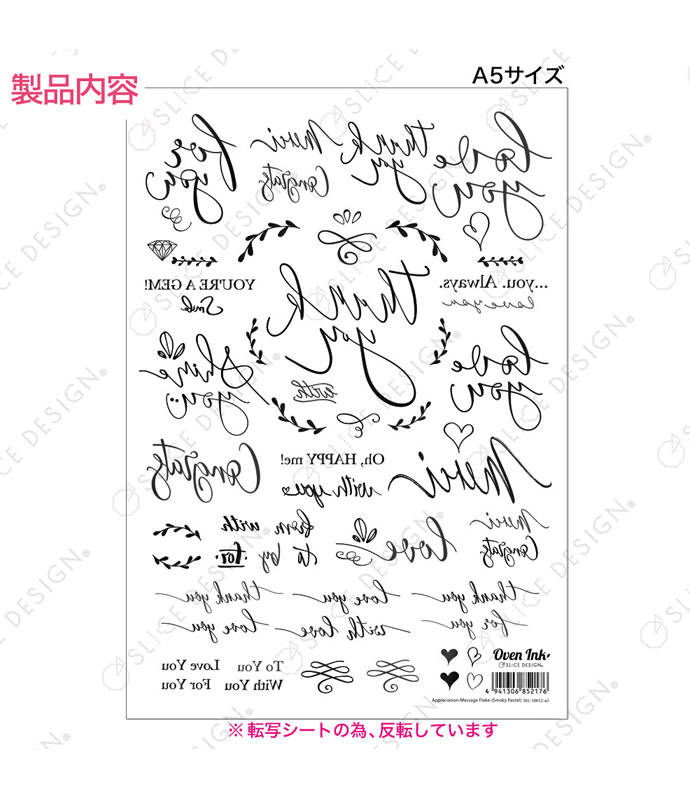 A5サイズ
製品内容
for you
Merci
Congrats
thank you
love you
YOU'RE A GEM!
Smile
thank you
...you. Always.
love you
Shine you
with
love you
Congrats
Oh, HAPPY me!
with you
Merci
from with
to by for
love
Merci
Congrats
thank you
love you
thank you
love you
with love
for you
Love You
To You
For You
With You
Oven Ink
SLICE DESIGN
4 941306 852176
Appreciation-Message Flake-(Smoky Pastel) 101-10012-a5
※転写シートの為、反転しています
SLICE DESIGN®